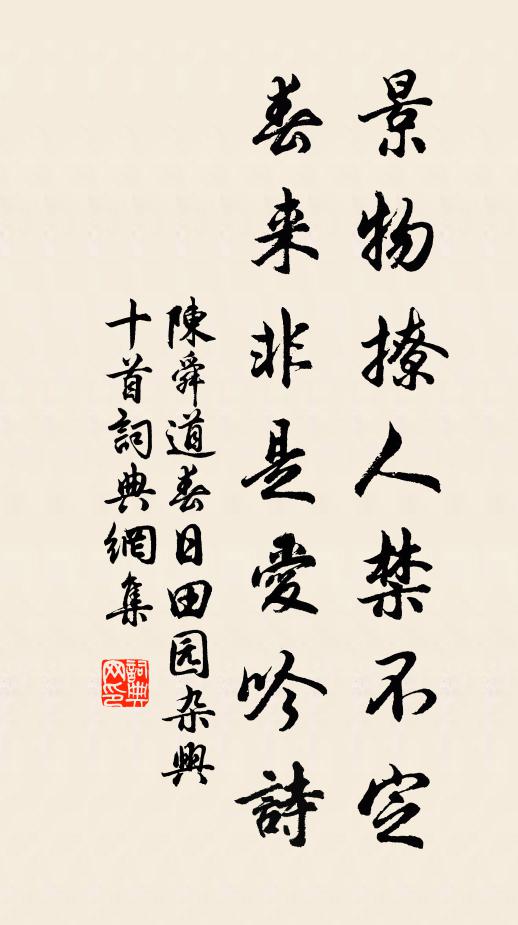 景物撩人禁不定
春来非是愛吟詩
陳舜道春日田园杂興
十首詞典網集
詞典
网印